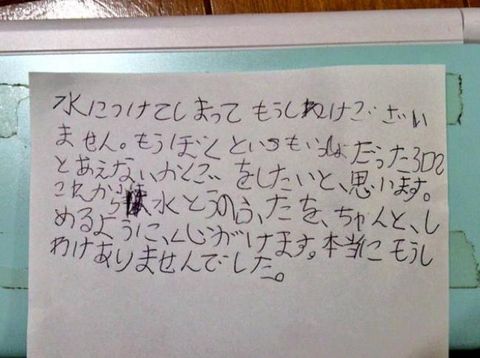 水につけてしまって もうしわけござい
ません。もうぼくといつもいっしょだった3DS
とあえないかくごをしたいと、思います。
これから水とうのふたを、ちゃんと、し
めるように、心がけます。本当にもうし
わけありませんでした。